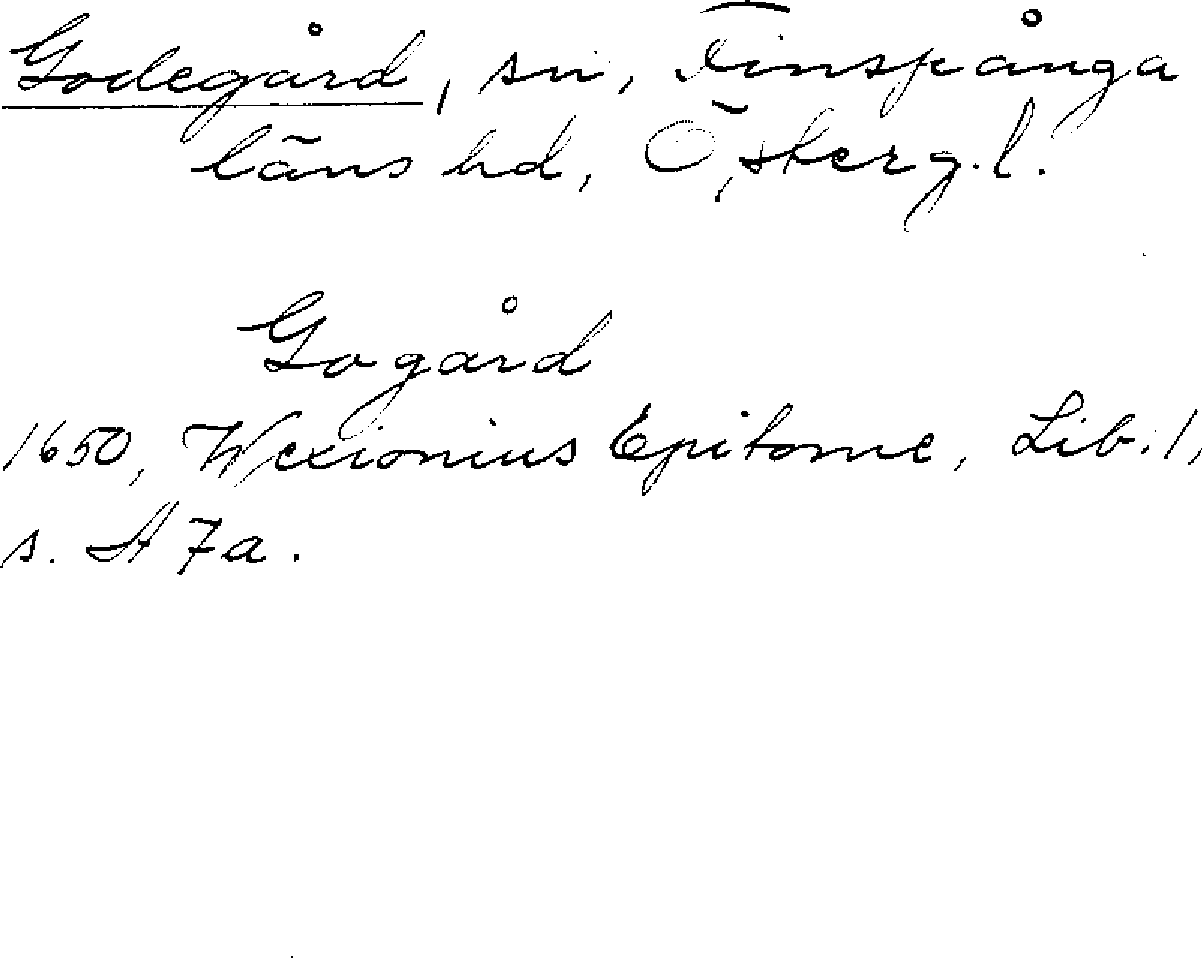 Godegård, sn, Finspånga
läns hd, Österg.l.
Gogård
1650, Wexionius Epitome, Lib. 1,
s. A 7a.